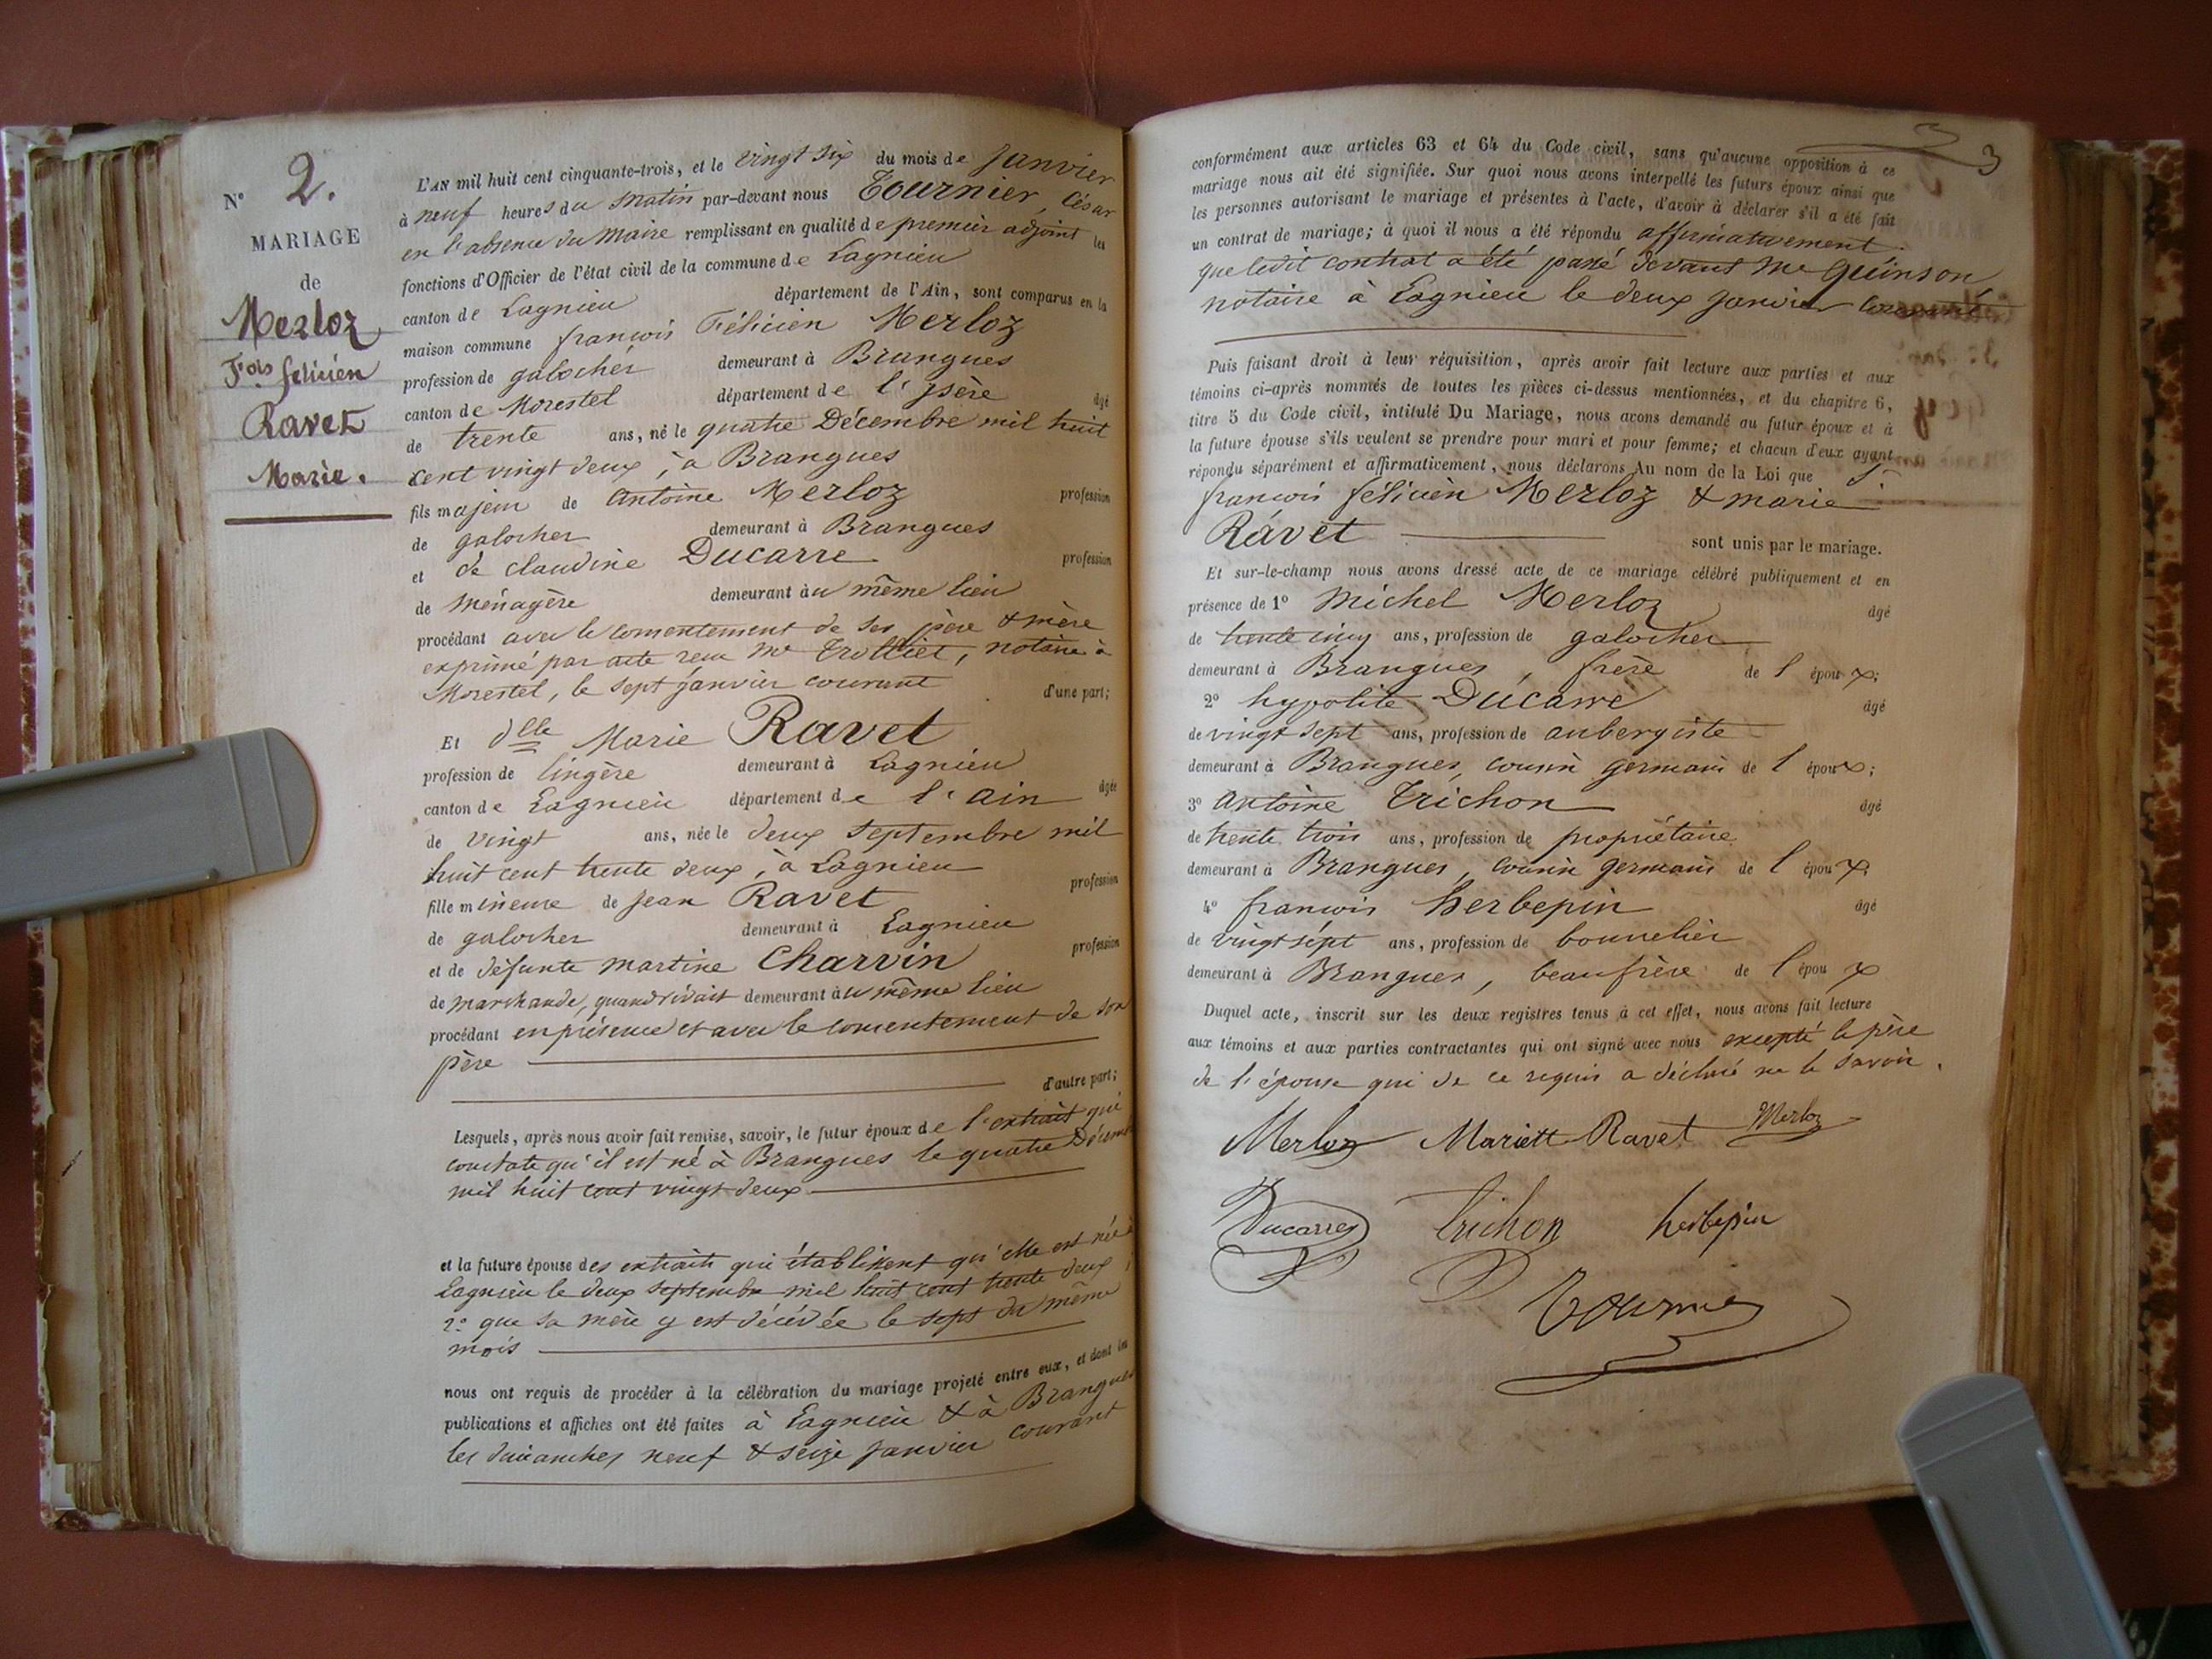 N° 2.
MARIAGE
de
Merloz
Fois félicien
Ravet
Marie.
L'AN mil huit cent cinquante-trois, et le vingt six du mois de Janvier
à neuf heures du matin par-devant nous Tournier, César
en l'absence du Maire remplissant en qualité de premier adjoint les
fonctions d'Officier de l'état civil de la commune de Lagnieu
canton de Lagnieu département de l'Ain, sont comparus en la
maison commune françois Félicien Merloz
profession de galochér demeurant à Brangues
canton de Morestel département de l'jsère âgé
de trente ans, né le quatre Décembre mil huit
cent vingt deux, à Brangues
fils majeur de Antoine Merloz profession
de galocher demeurant à Brangues
et de claudine Ducarre profession
de ménagère demeurant au même lieu
procédant avec le consentement de ses père & mère
exprimé par acte reçu Me Trolliet, notaire à
Morestel, le sept janvier courant d'une part;
Et dlle Marie Ravet
profession de lingère demeurant à Lagnieu
canton de Lagnieu département de l'ain âgée
de vingt ans, née le deux septembre mil
huit cent trente deux, à Lagnieu
fille mineure de jean Ravet profession
de galocher demeurant à Lagnieu
et de défunte martine Charvin profession
de marchande, quand vivait demeurant au même lieu
procédant en présence et avec le consentement de son
père
d'autre part;
Lesquels, après nous avoir fait remise, savoir, le futur époux de l'extrait qui
constate qu'il est né à Brangues le quatre Décembre
mil huit cent vingt deux
et la future épouse des extraits qui établissent qu'elle est née à
Lagnieu le deux septembre mil huit cent trente deux;
2° que sa mère y est décédée le sept du même
mois
nous ont requis de procéder à la célébration du mariage projeté entre eux, et dont les
publications et affiches ont été faites à Lagnieu & à Brangues
les dimanches neuf & seize janvier courant
3
conformément aux articles 63 et 64 du Code civil, sans qu'aucune opposition à ce
mariage nous ait été signifiée. Sur quoi nous avons interpellé les futurs époux ainsi que
les personnes autorisant le mariage et présentes à l'acte, d'avoir à déclarer s'il a été fait
un contrat de mariage; à quoi il nous a été répondu affirmativement
que ledit contrat a été passé devant Me Quinson,
notaire à Lagnieu le deux janvier courant
Puis faisant droit à leur réquisition, après avoir fait lecture aux parties et aux
témoins ci-après nommés de toutes les pièces ci-dessus mentionnées, et du chapitre 6,
titre 5 du Code civil, intitulé Du Mariage, nous avons demandé au futur époux et à
la future épouse s'ils veulent se prendre pour mari et pour femme; et chacun d'eux ayant
répondu séparément et affirmativement, nous déclarons Au nom de la Loi que
françois félicien Merloz & marie
Ravet sont unis par le mariage.
Et sur-le-champ nous avons dressé acte de ce mariage célébré publiquement et en
présence de 1° Michel Merloz âgé
de trente cinq ans, profession de galocher
demeurant à Brangues, frère de l'époux;
2° hypolite Ducarre âgé
de vingt sept ans, profession de aubergiste
demeurant à Brangues, cousin germain de l'époux;
3° Antoine Trichon âgé
de trente trois ans, profession de propriétaire
demeurant à Brangues, cousin germain de l'époux;
4° françois herbepin âgé
de vingt sept ans, profession de bourrelier
demeurant à Brangues, beaufrère de l'époux
Duquel acte, inscrit sur les deux registres tenus à cet effet, nous avons fait lecture
aux témoins et aux parties contractantes qui ont signé avec nous excepté le père
de l'épouse qui de ce requis a déclaré ne le savoir.
Merloz Mariett Ravet Merloz
Ducarre Trichon herbepin
Tournier